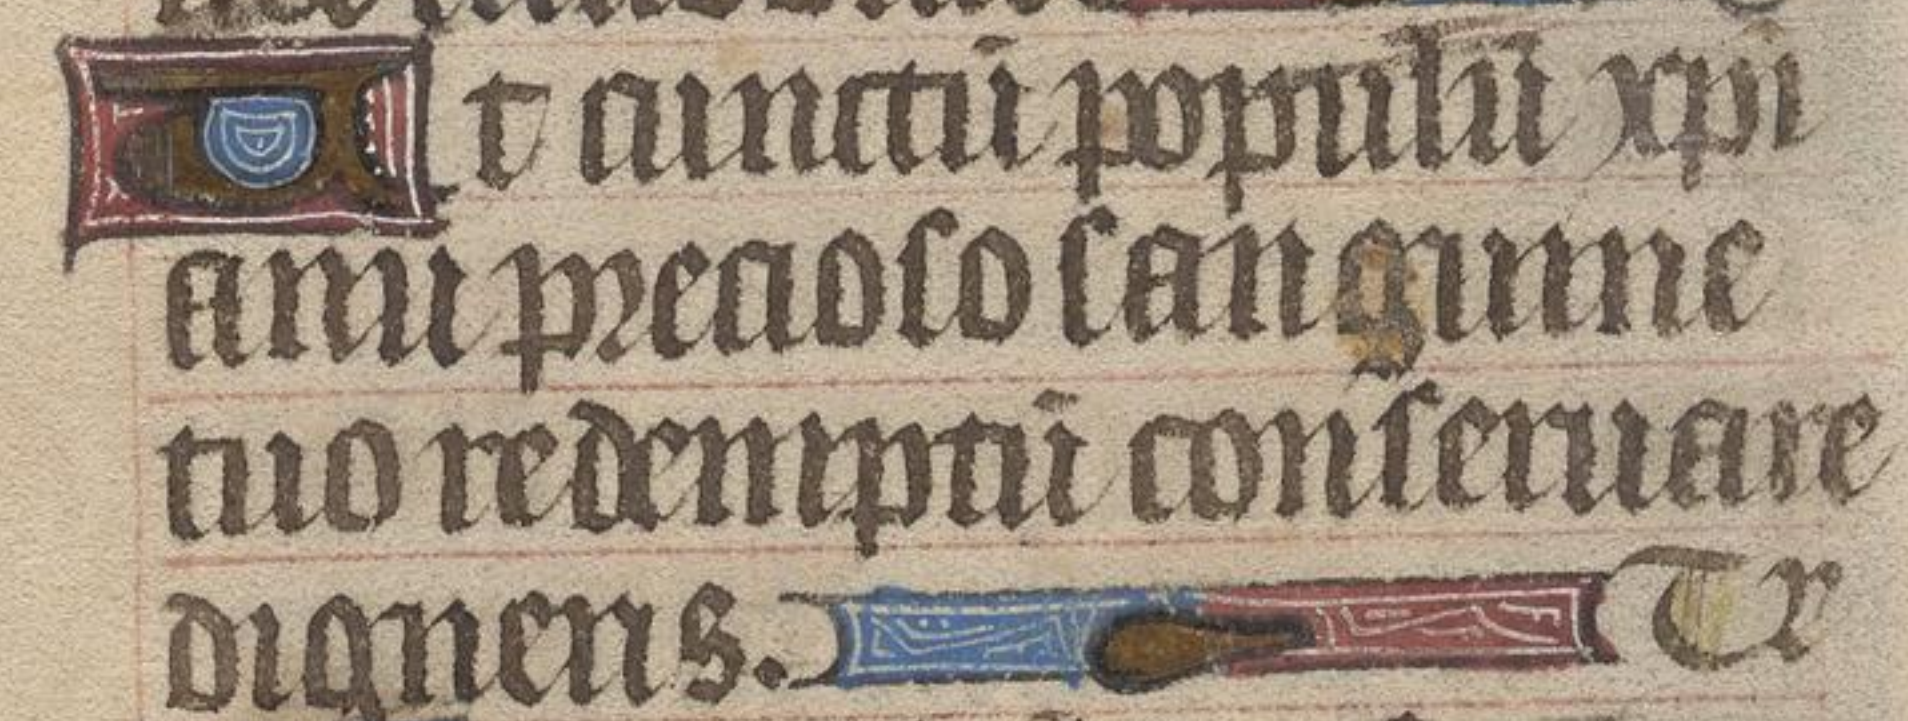 Ut cunctū populū xpi
anū precioso sanguine
tuo redemptū conseruare
digneris. Te r